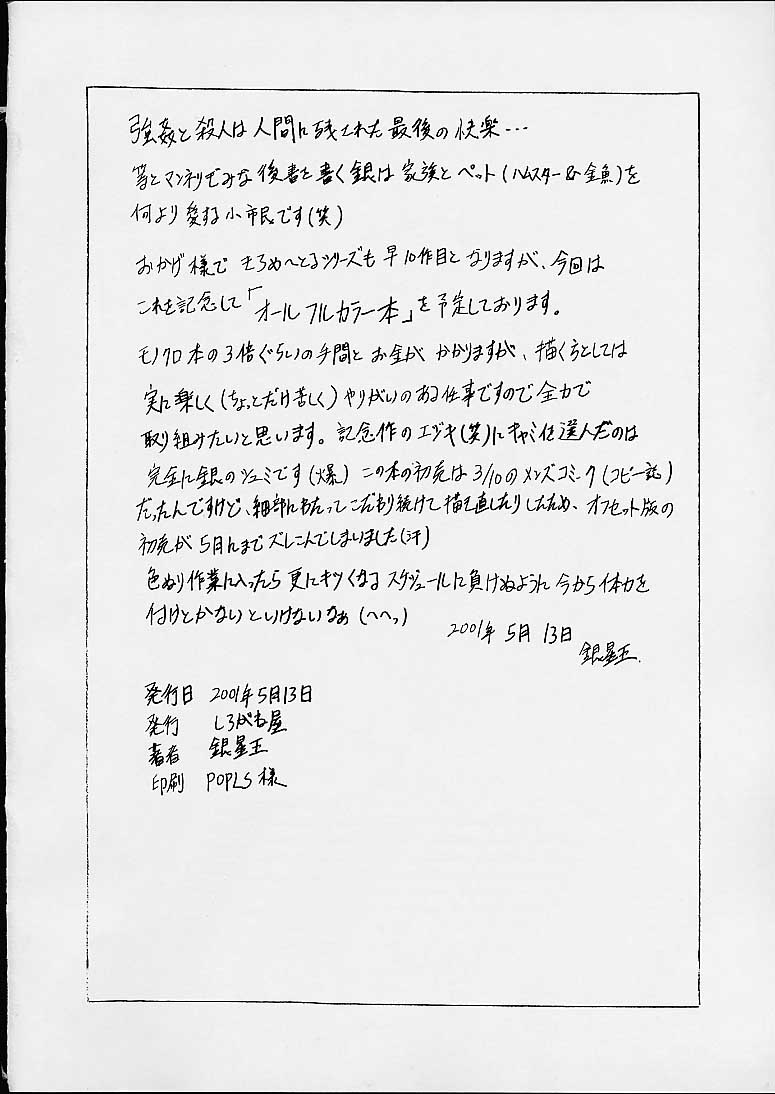 強姦と殺人は人間に残された最後の快楽…
等とマンネリぎみな後書を書く銀は家族とペット(ハムスター&金魚)を
何より愛する小市民です(笑)
おかげ様で きろめーとるシリーズも早10作目となりますが、今回は
これを記念して「オールフルカラー本」を予定しております。
モノクロ本の3倍ぐらいの手間とお金がかかりますが、描く方としては
実に楽しく(ちょっとだけ苦しく)やりがいのある仕事ですので全力で
取り組みたいと思います。記念作のエジキ(笑)にキャミィを選んだのは
完全に銀のシュミです(爆) この本の初売は3/10のメンズコミーク(コピー誌)
だったんですけど、細部にわたってこだわり続けて描き直したりしたため、オフセット版の
初売が5月にまでズレこんでしまいました(汗)
色ぬり作業に入ったら更にキツくなるスケジュールに負けぬように今から体力を
付けとかないといけないなぁ(へへっ)
2001年5月13日
銀星王
発行日 2001年5月13日
発行 しろがね屋
著者 銀星王
印刷 POPLS様